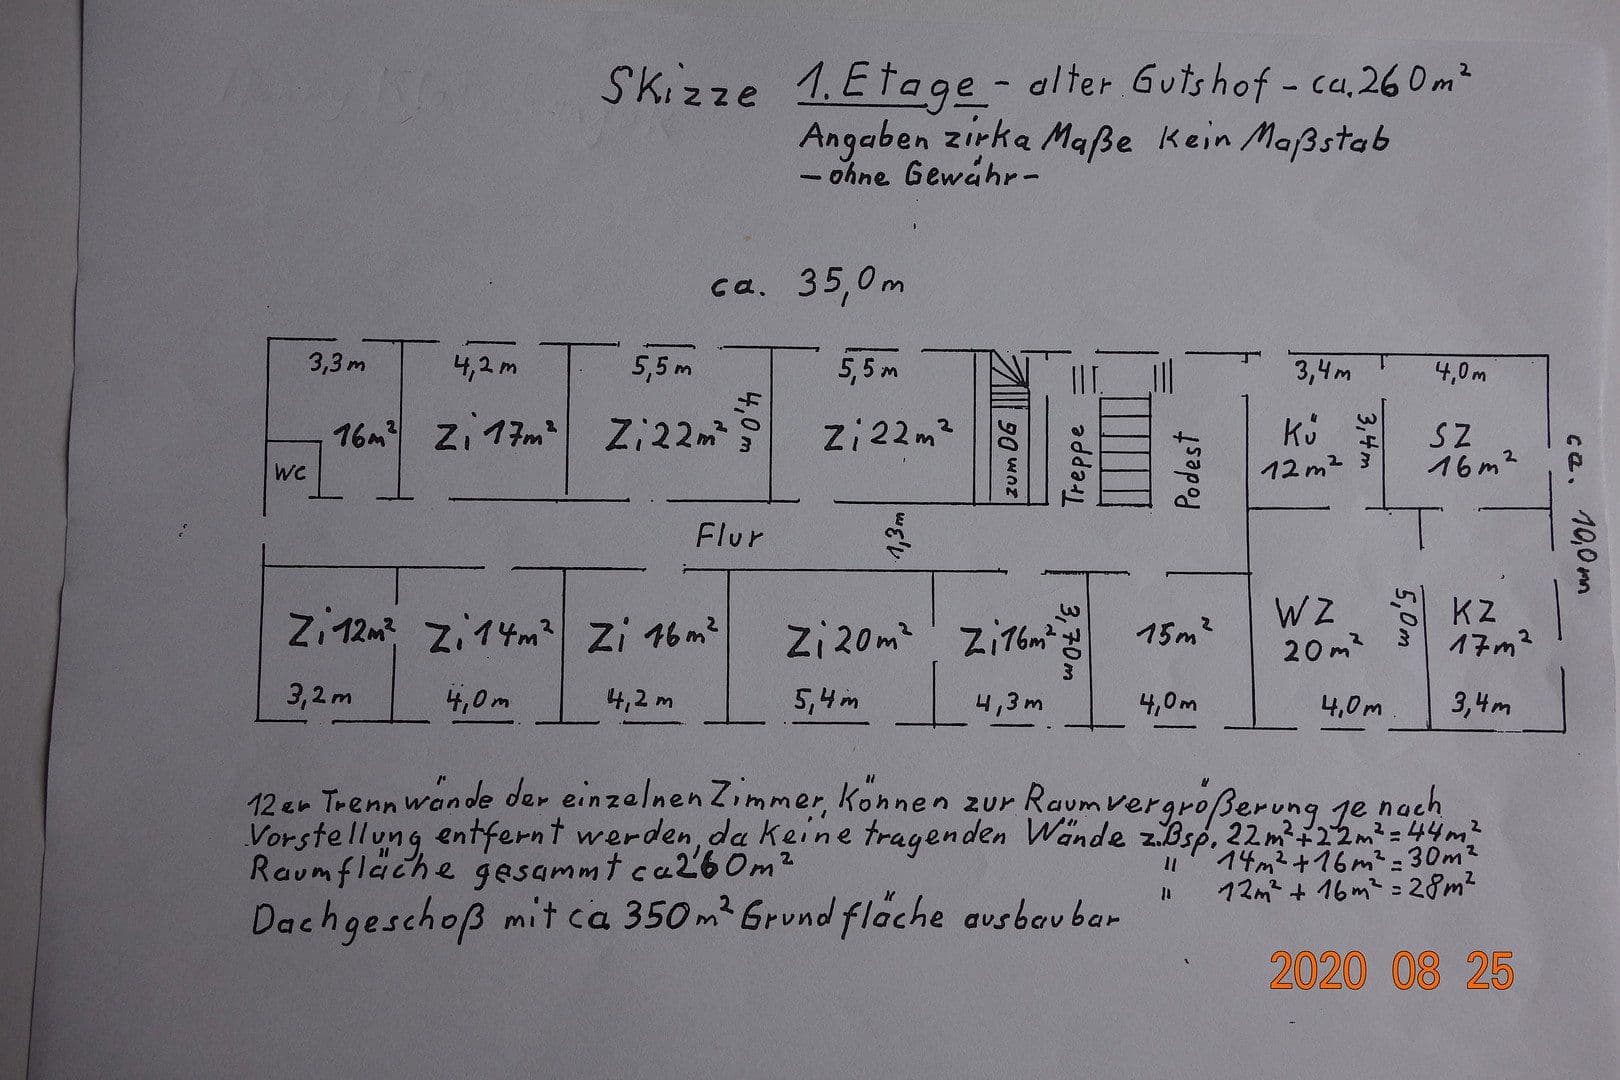 Skizze 1. Etage - alter Gutshof - ca. 260m²
Angaben zirka Maße kein Maßstab
- ohne Gewähr -
ca. 35,0m
3,3m 4,2m 5,5m 5,5m 3,4m 4,0m
16m² Zi 17m² Zi 22m² 4,0m Zi 22m² zum DG Treppe Podest Kü 12m² 3,4m SZ 16m²
WC
ca. 10,0m
Flur 1,3m
Zi 12m² Zi 14m² Zi 16m² Zi 20m² Zi 16m² 3,70m 15m² WZ 20m² 5,0m KZ 17m²
3,2m 4,0m 4,2m 5,4m 4,3m 4,0m 4,0m 3,4m
12er Trennwände der einzelnen Zimmer, können zur Raumvergrößerung je nach
Vorstellung entfernt werden, da keine tragenden Wände z.Bsp. 22m²+22m²=44m²
Raumfläche gesammt ca 260m² " 14m²+16m²=30m²
" 12m²+16m²=28m²
Dachgeschoß mit ca 350m² Grundfläche ausbaubar
2020 08 25